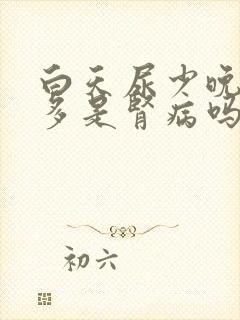 白天尿少晚
多是肾病吗
初六